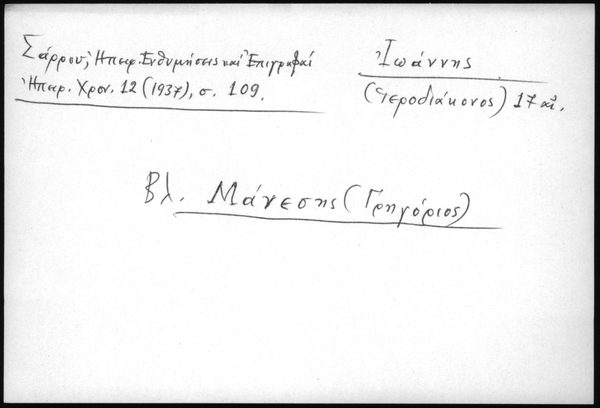 Σάρρου, Ἠπειρ. Ἐνθυμήσεις καὶ Ἐπιγραφαί
Ἠπειρ. Χρον. 12 (1937), σ. 109.
Ἰωάννης
(Ἱεροδιάκονος) 17 αἰ.
Βλ. Μάνεσης (Γρηγόριος)